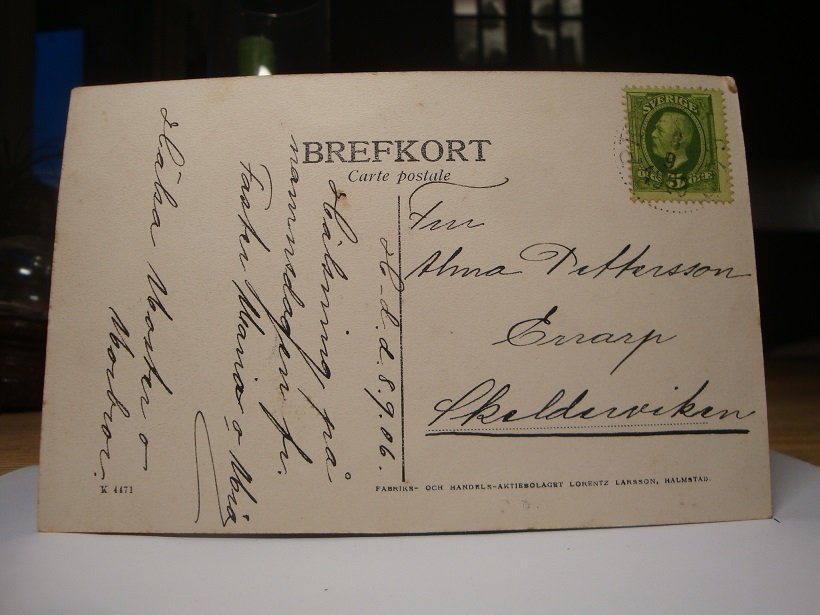 BREFKORT
Carte postale
SVERIGE
5 ÖRE
H-d. d. 8.9.06.
Hälsning på
namnsdagen fr.
Faster Maria o Mia
Hälsa Moster o
Morbror.
Fru
Alma Pettersson
Errarp
Skelderviken
K 4471
FABRIKS- OCH HANDELS-AKTIEBOLAGET LORENTZ LARSSON, HALMSTAD.